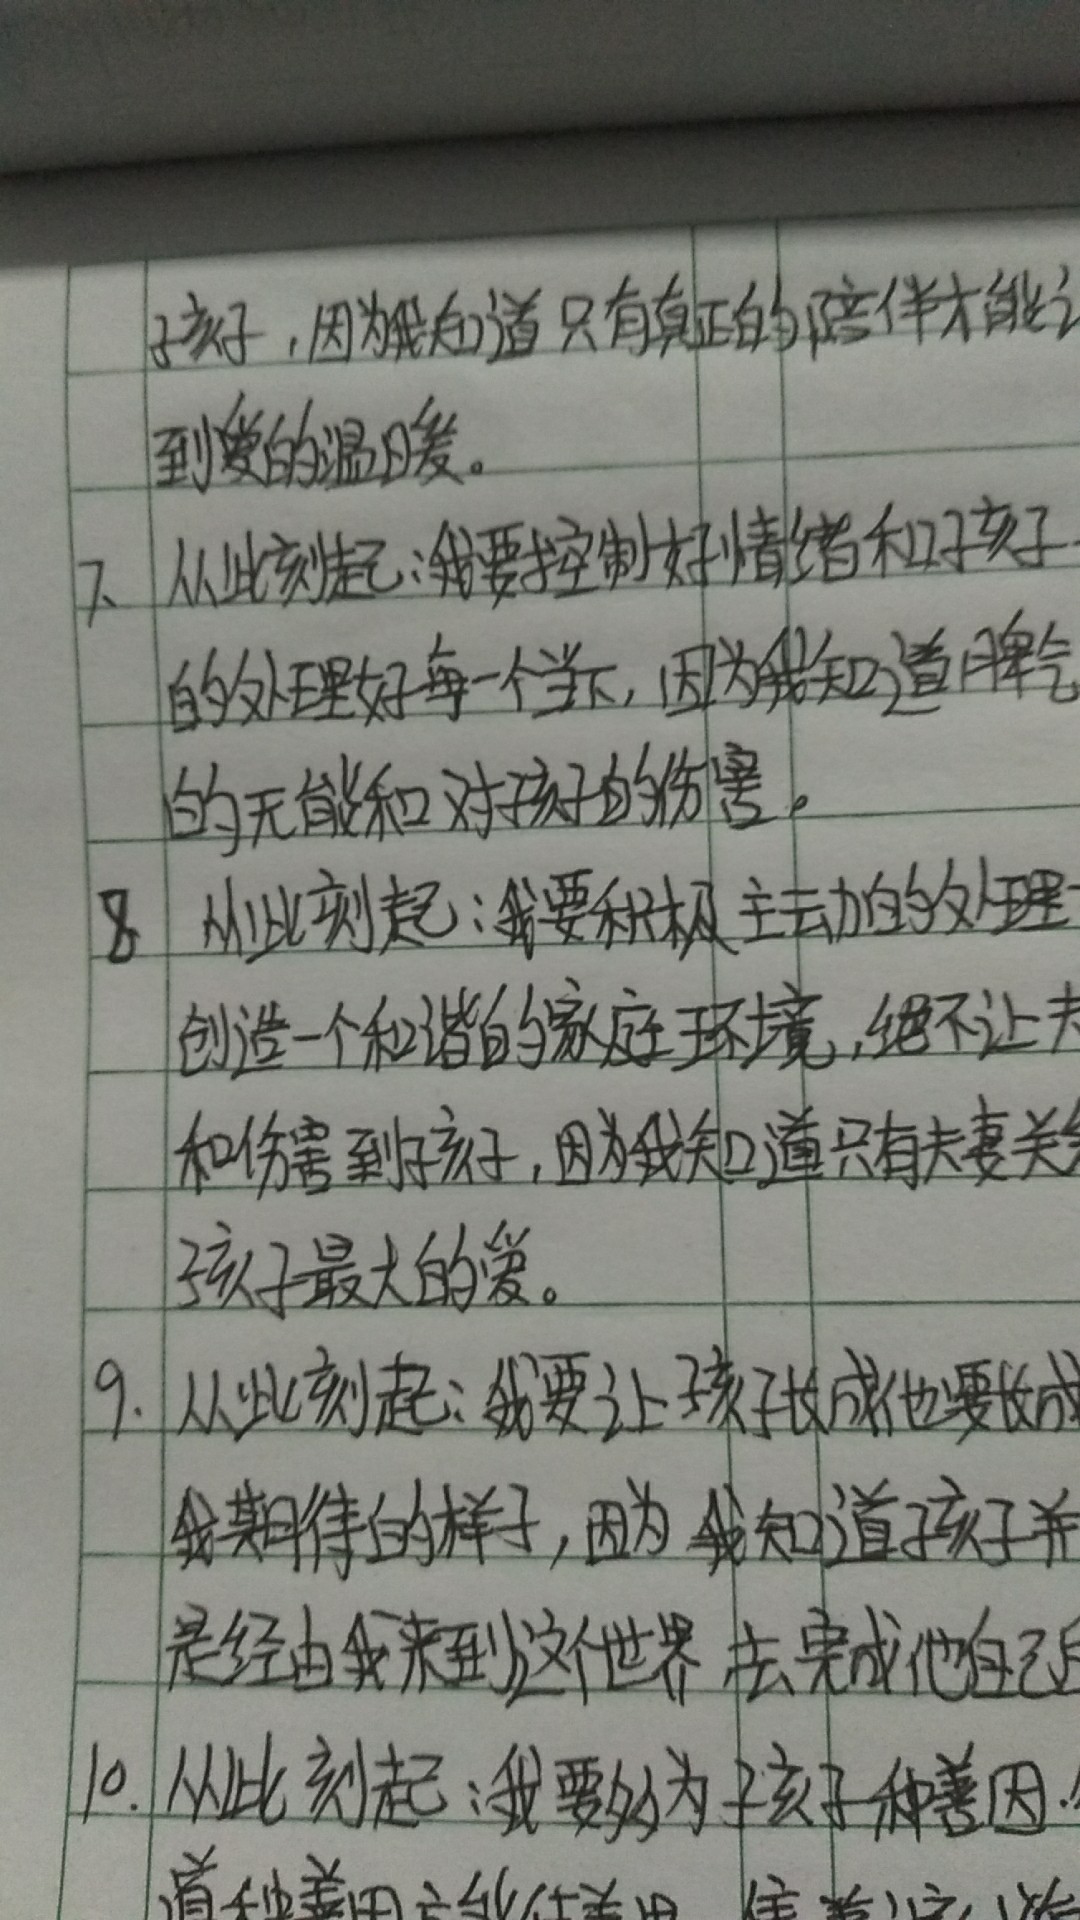 孩子，因为我知道只有真正的陪伴才能让
到爱的温暖。
7、从此刻起：我要控制好情绪和孩子
的处理好每一个当下，因为我知道脾气
的无能和对孩子的伤害。
8 从此刻起：我要积极主动的处理
创造一个和谐的家庭环境，绝不让夫
和伤害到孩子，因为我知道只有夫妻关系
孩子最大的爱。
9. 从此刻起：我要让孩子长成他要长成
我期待的样子，因为我知道孩子并
是经由我来到这个世界去完成他自己
10. 从此刻起：我要多为孩子种善因.
道种善因方能结善果